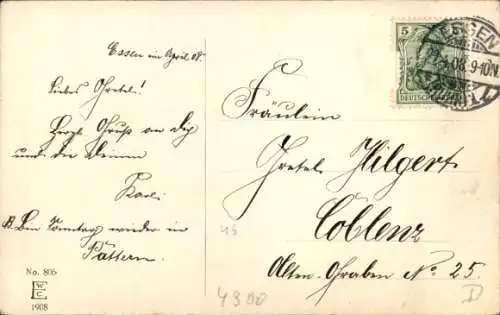 Essen im April 08.
Liebes Gretel!
Herzl. Gruß an Dich
und die Deinen
Karl.
Bin Sonntag wieder in
Pattern.
No. 806
W
E
C
1908
5
DEUTSCHES REICH
ESSEN
08. 9-10 N
Fräulein
Gretel Hilgert
Coblenz
Alten-Graben No 25.
45
4300
D